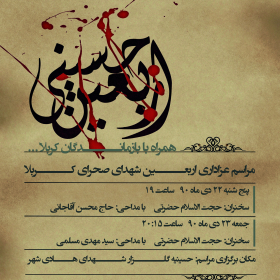 اربعین حسینی
همراه با بازماندگان کربلا...
مراسم عزاداری اربعین شهدای صحرای کربلا
پنج شنبه ۲۲ دی ماه ۹۰ ساعت ۱۹
سخنران: حجت الاسلام حضرتی با مداحی: حاج محسن آقاجانی
جمعه ۲۳ دی ماه ۹۰ ساعت ۲۰:۱۵
سخنران: حجت الاسلام حضرتی با مداحی: سید مهدی مسلمی
مکان برگزاری مراسم: حسینیه گلزار شهدای هادی شهر